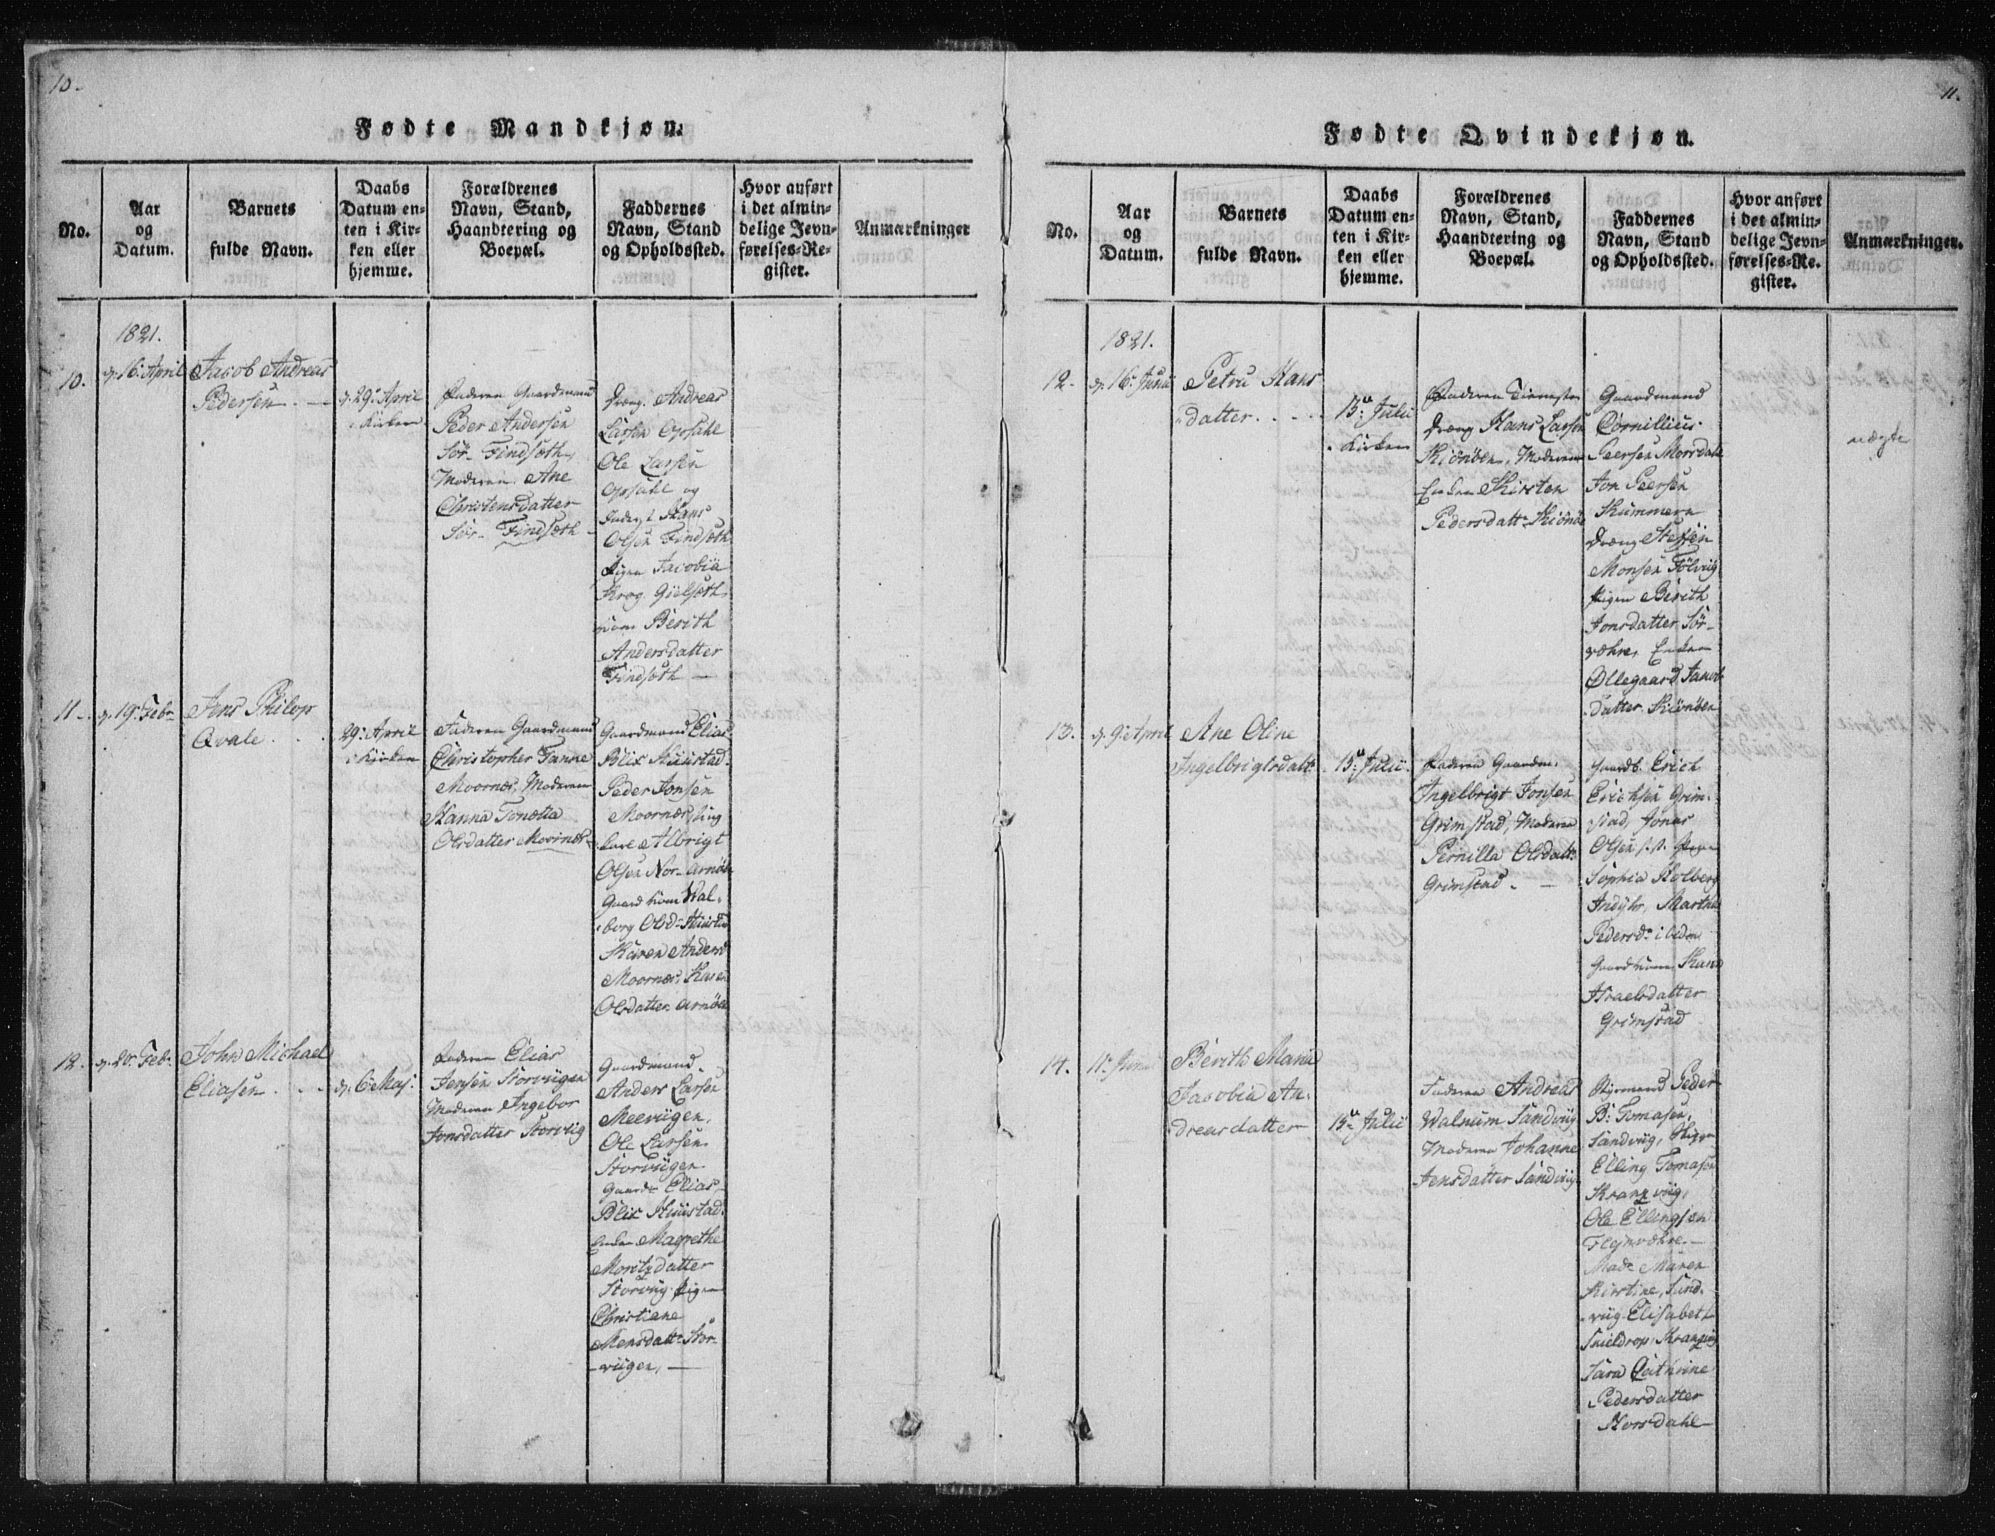 10.
Fødte Mandkjøn.
No.
Aar
og
Datum.
Barnets
fulde Navn.
Daabs
Datum en-
ten i Kir-
ken eller
hjemme.
Forældrenes
Navn, Stand,
Haandtering og
Boepæl.
Faddernes
Navn, Stand
og Opholdssted.
Hvor anført
i det almin-
delige Jevn-
førelses-Re-
gister.
Anmærkninger
1821.
10.
d. 16 April
Jacob Andreas
Pedersen.
d. 29 April
i Kirken
Faderen Gaardmand
Peder Andersen
Sør- Findsæth,
Moderen Ane
Christensdatter
Sør- Findsæth
Dreng Andreas
Larsen Opsahl
Ole Larsen
Opsahl og
Hans
Olsen Findsæth
Pigen Jacobia
Krog Gielsæth,
Berith
Andersdatter
Findsæth —
11.
d. 19 Febr
Jens Philop
Qvale.
29 April
i Kirken
Faderen Gaardmand
Christopher Fanne
Moornæs, Moderen
Hanna Tonetta
Olsdatter Moornæs
Gaardmand Elias
Blix Kuustad
Peder Jonsen
Moornæs, Ung
karl Albrigt
Olsen Nor- arnøen
Gaardkone Wal-
borg Olsd
Karen Andersd
Moornæs, Karen
Olsdatter arnøen
12.
d. 20 Feb:
John Michael
Eliasen.
d. 6 Maj:
Faderen Elias
Jensen Storviigen
Moderen Ingebor
Jonsdatter Storviig
Gaardmand
Anders Larsen
Meeviigen,
Ole Larsen
Storviigen
Gaardm Elias
Blix Kuustad
Enken Magrethe
Moritzdatter
Storviig, Pigen
Christiane
Mensdatt: Stor-
viigen, —
11.
Fødte Qvindekjøn.
No.
Aar
og
Datum.
Barnets
fulde Navn.
Daabs
Datum en-
ten i Kir-
ken eller
hjemme.
Forældrenes
Navn, Stand,
Haandtering og
Boepæl.
Faddernes
Navn, Stand
og Opholdssted.
Hvor anført
i det almin-
delige Jevn-
førelses-Re-
gister.
Anmærkninger.
1821.
12.
d. 16 Junii
Petra Hans
datter.
15 Julii
i Kirken
Faderen Tieneste
Dreng Hans Larsen
Skiønøen, Moderen
Enken Kirsten
Pedersdatt: Skiønøe
Gaardmand
Cornillius
Peersen Morsdahl
Jon Peersen
Kummern
Dreng Steffen
Monsen Fölviig
Pigen Berith
Jonsdatter Sør-
væhre, Enken
Øllegaard Jacob
datter Skiønøen
uægte
13.
d. 9 April
Ane Oline
Ingelbrigtsdatt:
15 Julii
Faderen Gaardm.
Ingelbrigt Jonsen
Grimstad, Moderen
Pernilla Olsdatt:
Grimstad.
Gaardb. Erich
Erichsen Grim-
stad, Jonas
Olsen s. st. Pigen
Sophia Holberg
Indyhr, Martha
Pedersd:
Gaardkone
Israelsdatter
Grimstad
14.
11 Junii
Berith Maria
Jacobia An-
dreasdatter
15 Julii
Faderen Andreas
Walnum Sandviig
Moderen Johanne
Jensdatter Sandviig
Styrmand Peder
B: Tomasen,
Sandviig,
Elling Tomasen
Kranzviig,
Ole Ellingsen
Flejnvæhre.—
Mad: Maren
Kirstine, Sand-
viig Elisabeth
Snieldrop, Kranzviig
Sara Cathrine
Pedersdatter
Morsdahl